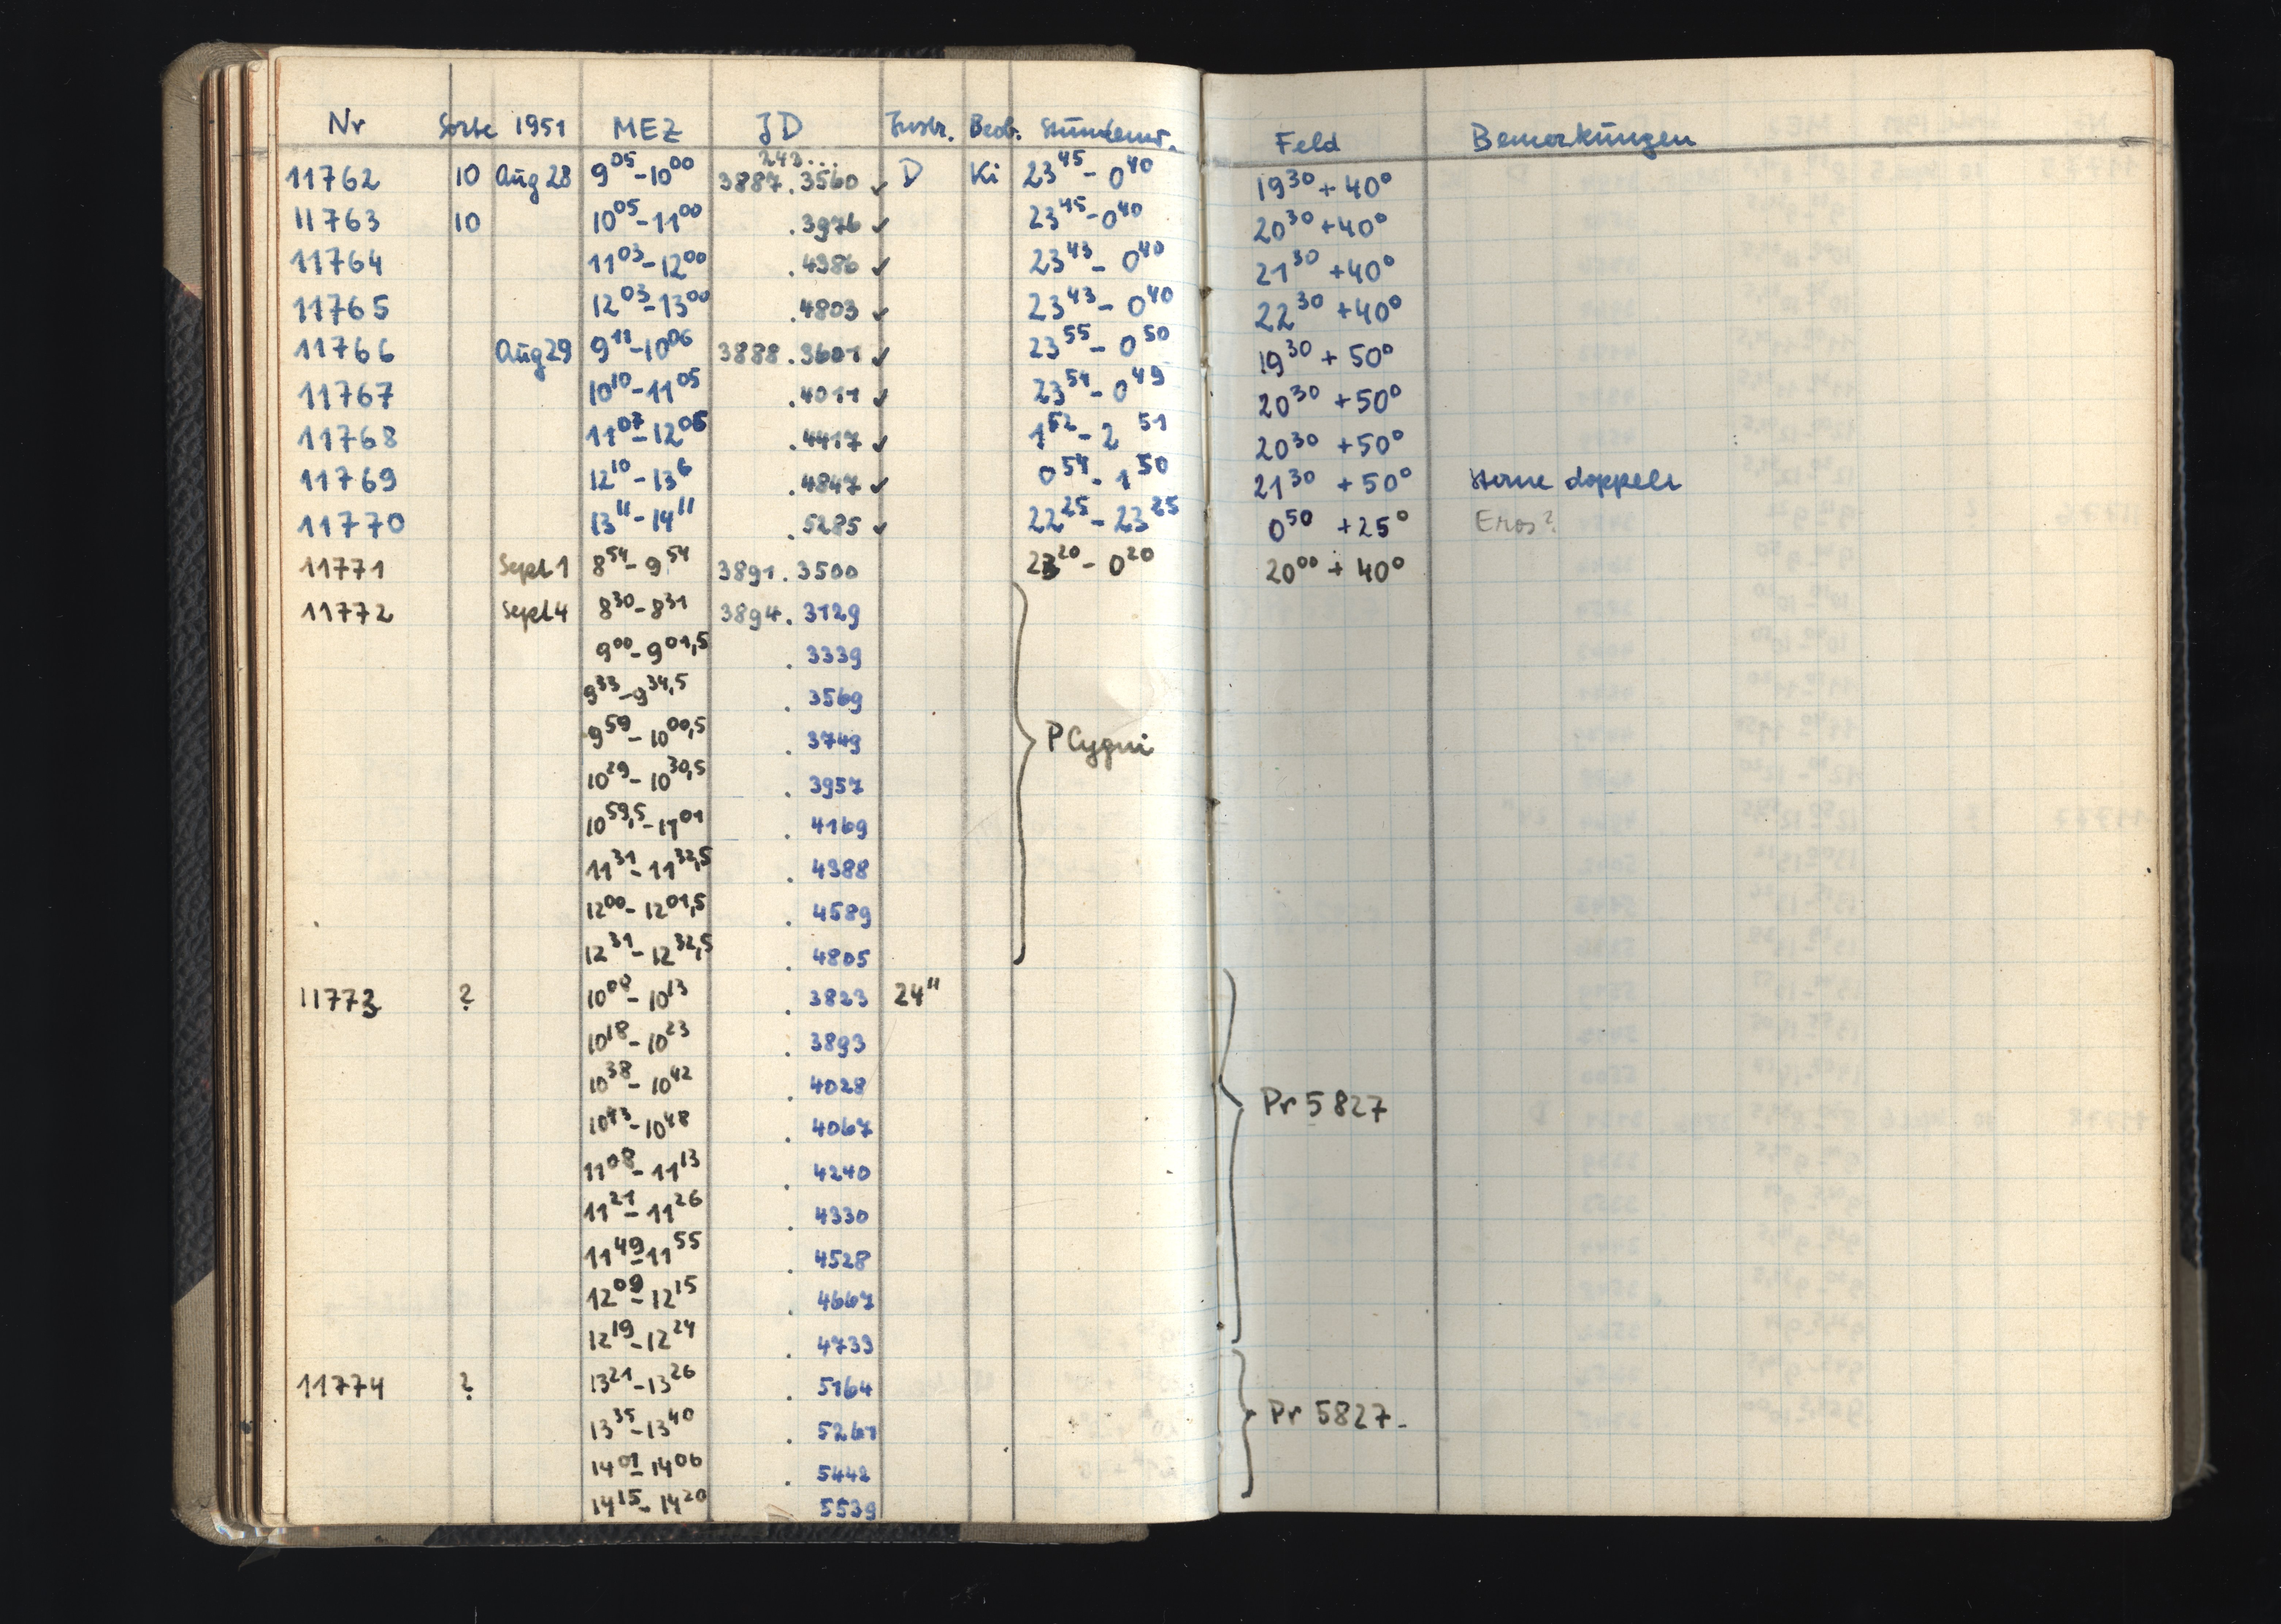 Nr Sorte 1951 MEZ JD Instr. Beob. Stundenw. Feld Bemerkungen
243...
11762 10 Aug 28 9⁰⁵-10⁰⁰ 3887.3560 ✓ D Ki 23⁴⁵-0⁴⁰ 19³⁰ + 40°
11763 10 10⁰⁵-11⁰⁰ .3976 ✓ 23⁴⁵-0⁴⁰ 20³⁰ +40°
11764 11⁰³-12⁰⁰ .4386 ✓ 23⁴³-0⁴⁰ 21³⁰ +40°
11765 12⁰³-13⁰⁰ .4803 ✓ 23⁴³-0⁴⁰ 22³⁰ +40°
11766 Aug 29 9¹¹-10⁰⁶ 3888.3601 ✓ 23⁵⁵-0⁵⁰ 19³⁰ + 50°
11767 10¹⁰-11⁰⁵ .4011 ✓ 23⁵⁴-0⁴⁹ 20³⁰ +50°
11768 11⁰⁷-12⁰⁶ .4417 ✓ 1⁵²-2⁵¹ 20³⁰ +50°
11769 12¹⁰-13⁶ .4847 ✓ 0⁵⁴-1⁵⁰ 21³⁰ +50° Sterne doppelt
11770 13¹¹-14¹¹ .5285 ✓ 22²⁵-23²⁵ 0⁵⁰ +25° Eros?
11771 Sept 1 8⁵⁴-9⁵⁴ 3891.3500 23²⁰-0²⁰ 20⁰⁰ + 40°
11772 Sept 4 8³⁰-8³¹ 3894.3129
9⁰⁰-9⁰¹,⁵ .3339
9³³-9³⁴,⁵ .3569
9⁵⁹-10⁰⁰,⁵ .3749 P Cygni
10²⁹-10³⁰,⁵ .3957
10⁵⁹,⁵-11⁰¹ .4169
11³¹-11³²,⁵ .4388
12⁰⁰-12⁰¹,⁵ .4589
12³¹-12³²,⁵ .4805
11773 ? 10⁰⁸-10¹³ .3823 24"
10¹⁸-10²³ .3893
10³⁸-10⁴² .4028
10⁴³-10⁴⁸ .4067 Pr 5827
11⁰⁸-11¹³ .4240
11²¹-11²⁶ .4330
11⁴⁹-11⁵⁵ .4528
12⁰⁹-12¹⁵ .4667
12¹⁹-12²⁴ .4733
11774 ? 13²¹-13²⁶ .5164
13³⁵-13⁴⁰ .5261 Pr 5827.
14⁰¹-14⁰⁶ .5442
14¹⁵-14²⁰ 5539